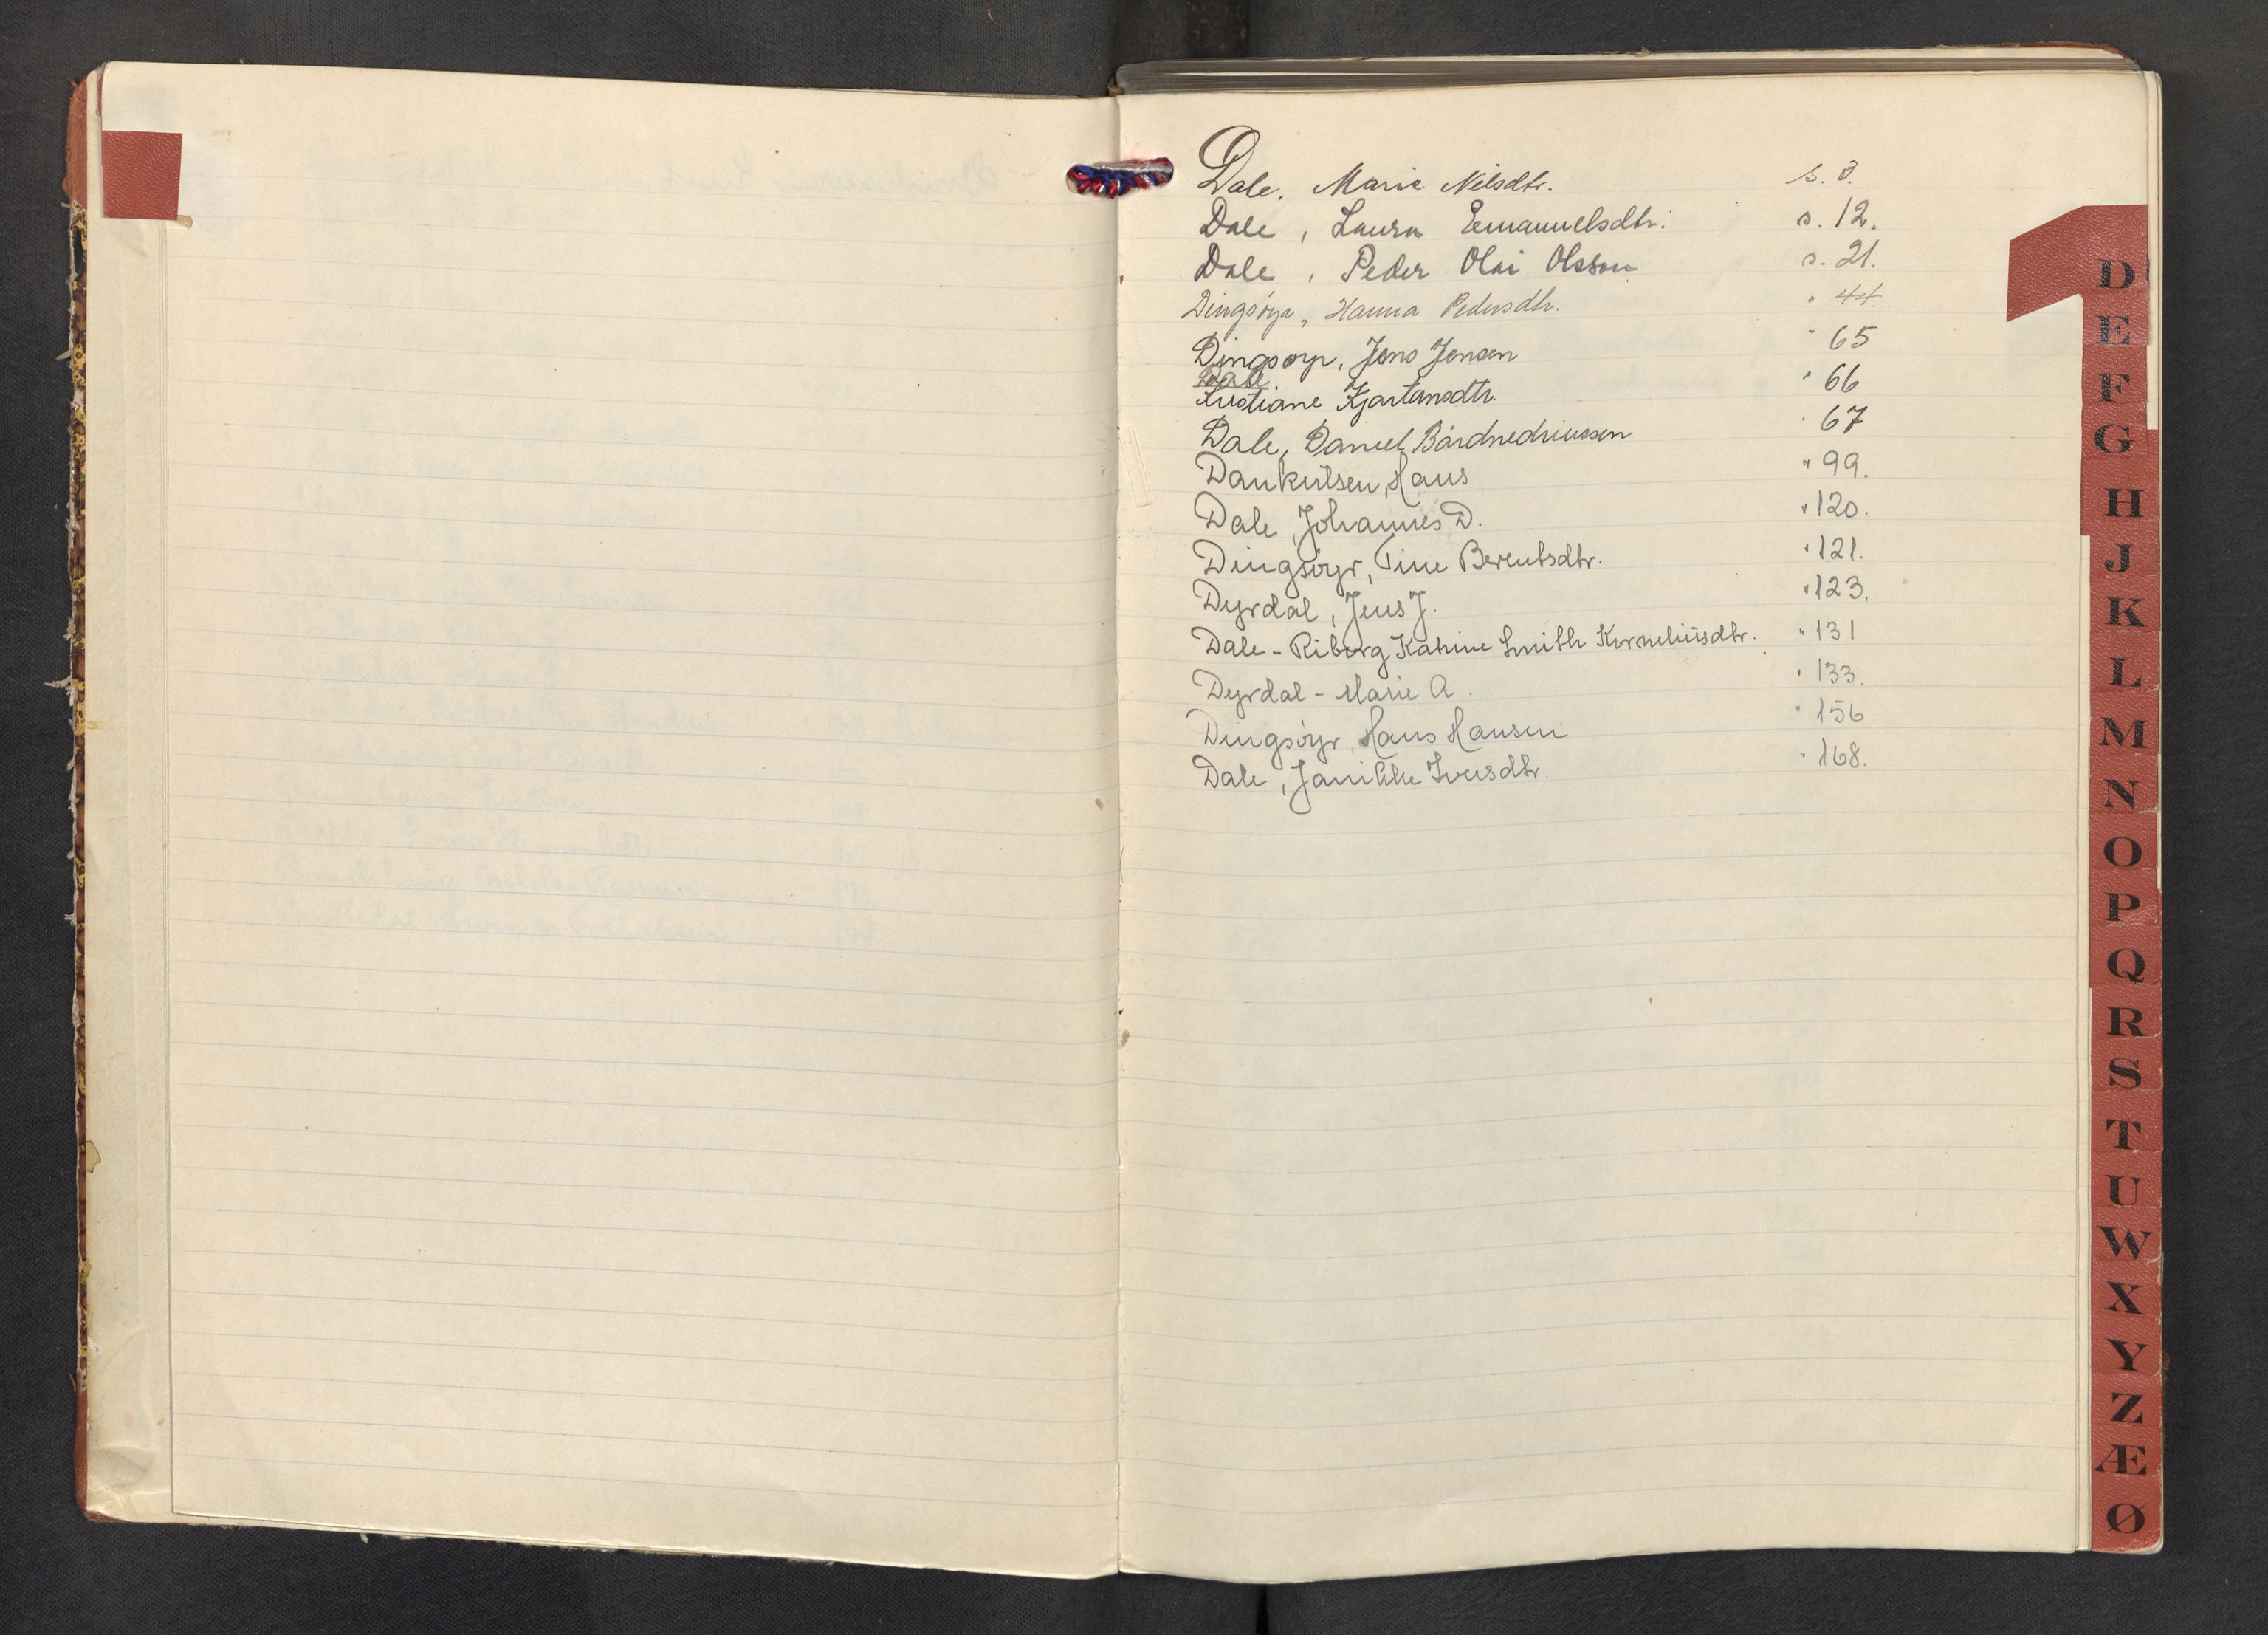 Dale, Marie Nilsdtr. s. 3.
Dale, Laura Emanuelsdtr. s. 12.
Dale, Peder Olai Olsson s. 21.
Dingsöyr, Hanna Pedersdtr. " 44.
Dingsöyr, Jens Jensen " 65
Dale
Kristiane Kjartansdtr. " 66
Dale, Daniel " 67
Dankertsen, Hans " 99.
Dale, Johannes D. " 120.
Dingsöyr, Tine Berentsdtr. " 121.
Dyrdal, Jens J. " 123.
Dale - Riborg Katrine Smith Korneliusdtr. " 131
Dyrdal - Marie A. " 133.
Dingsöyr, Hans Hansen " 156
Dale, Janikke Iversdtr. " 168.
D
E
F
G
H
J
K
L
M
N
O
P
Q
R
S
T
U
W
X
Y
Z
Æ
Ø